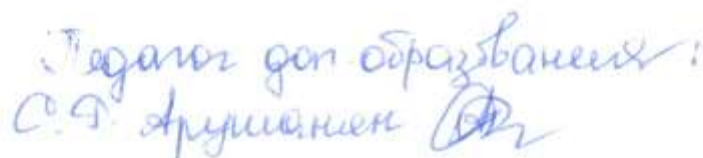 Педагог доп образования:
С.Г. Арушанян